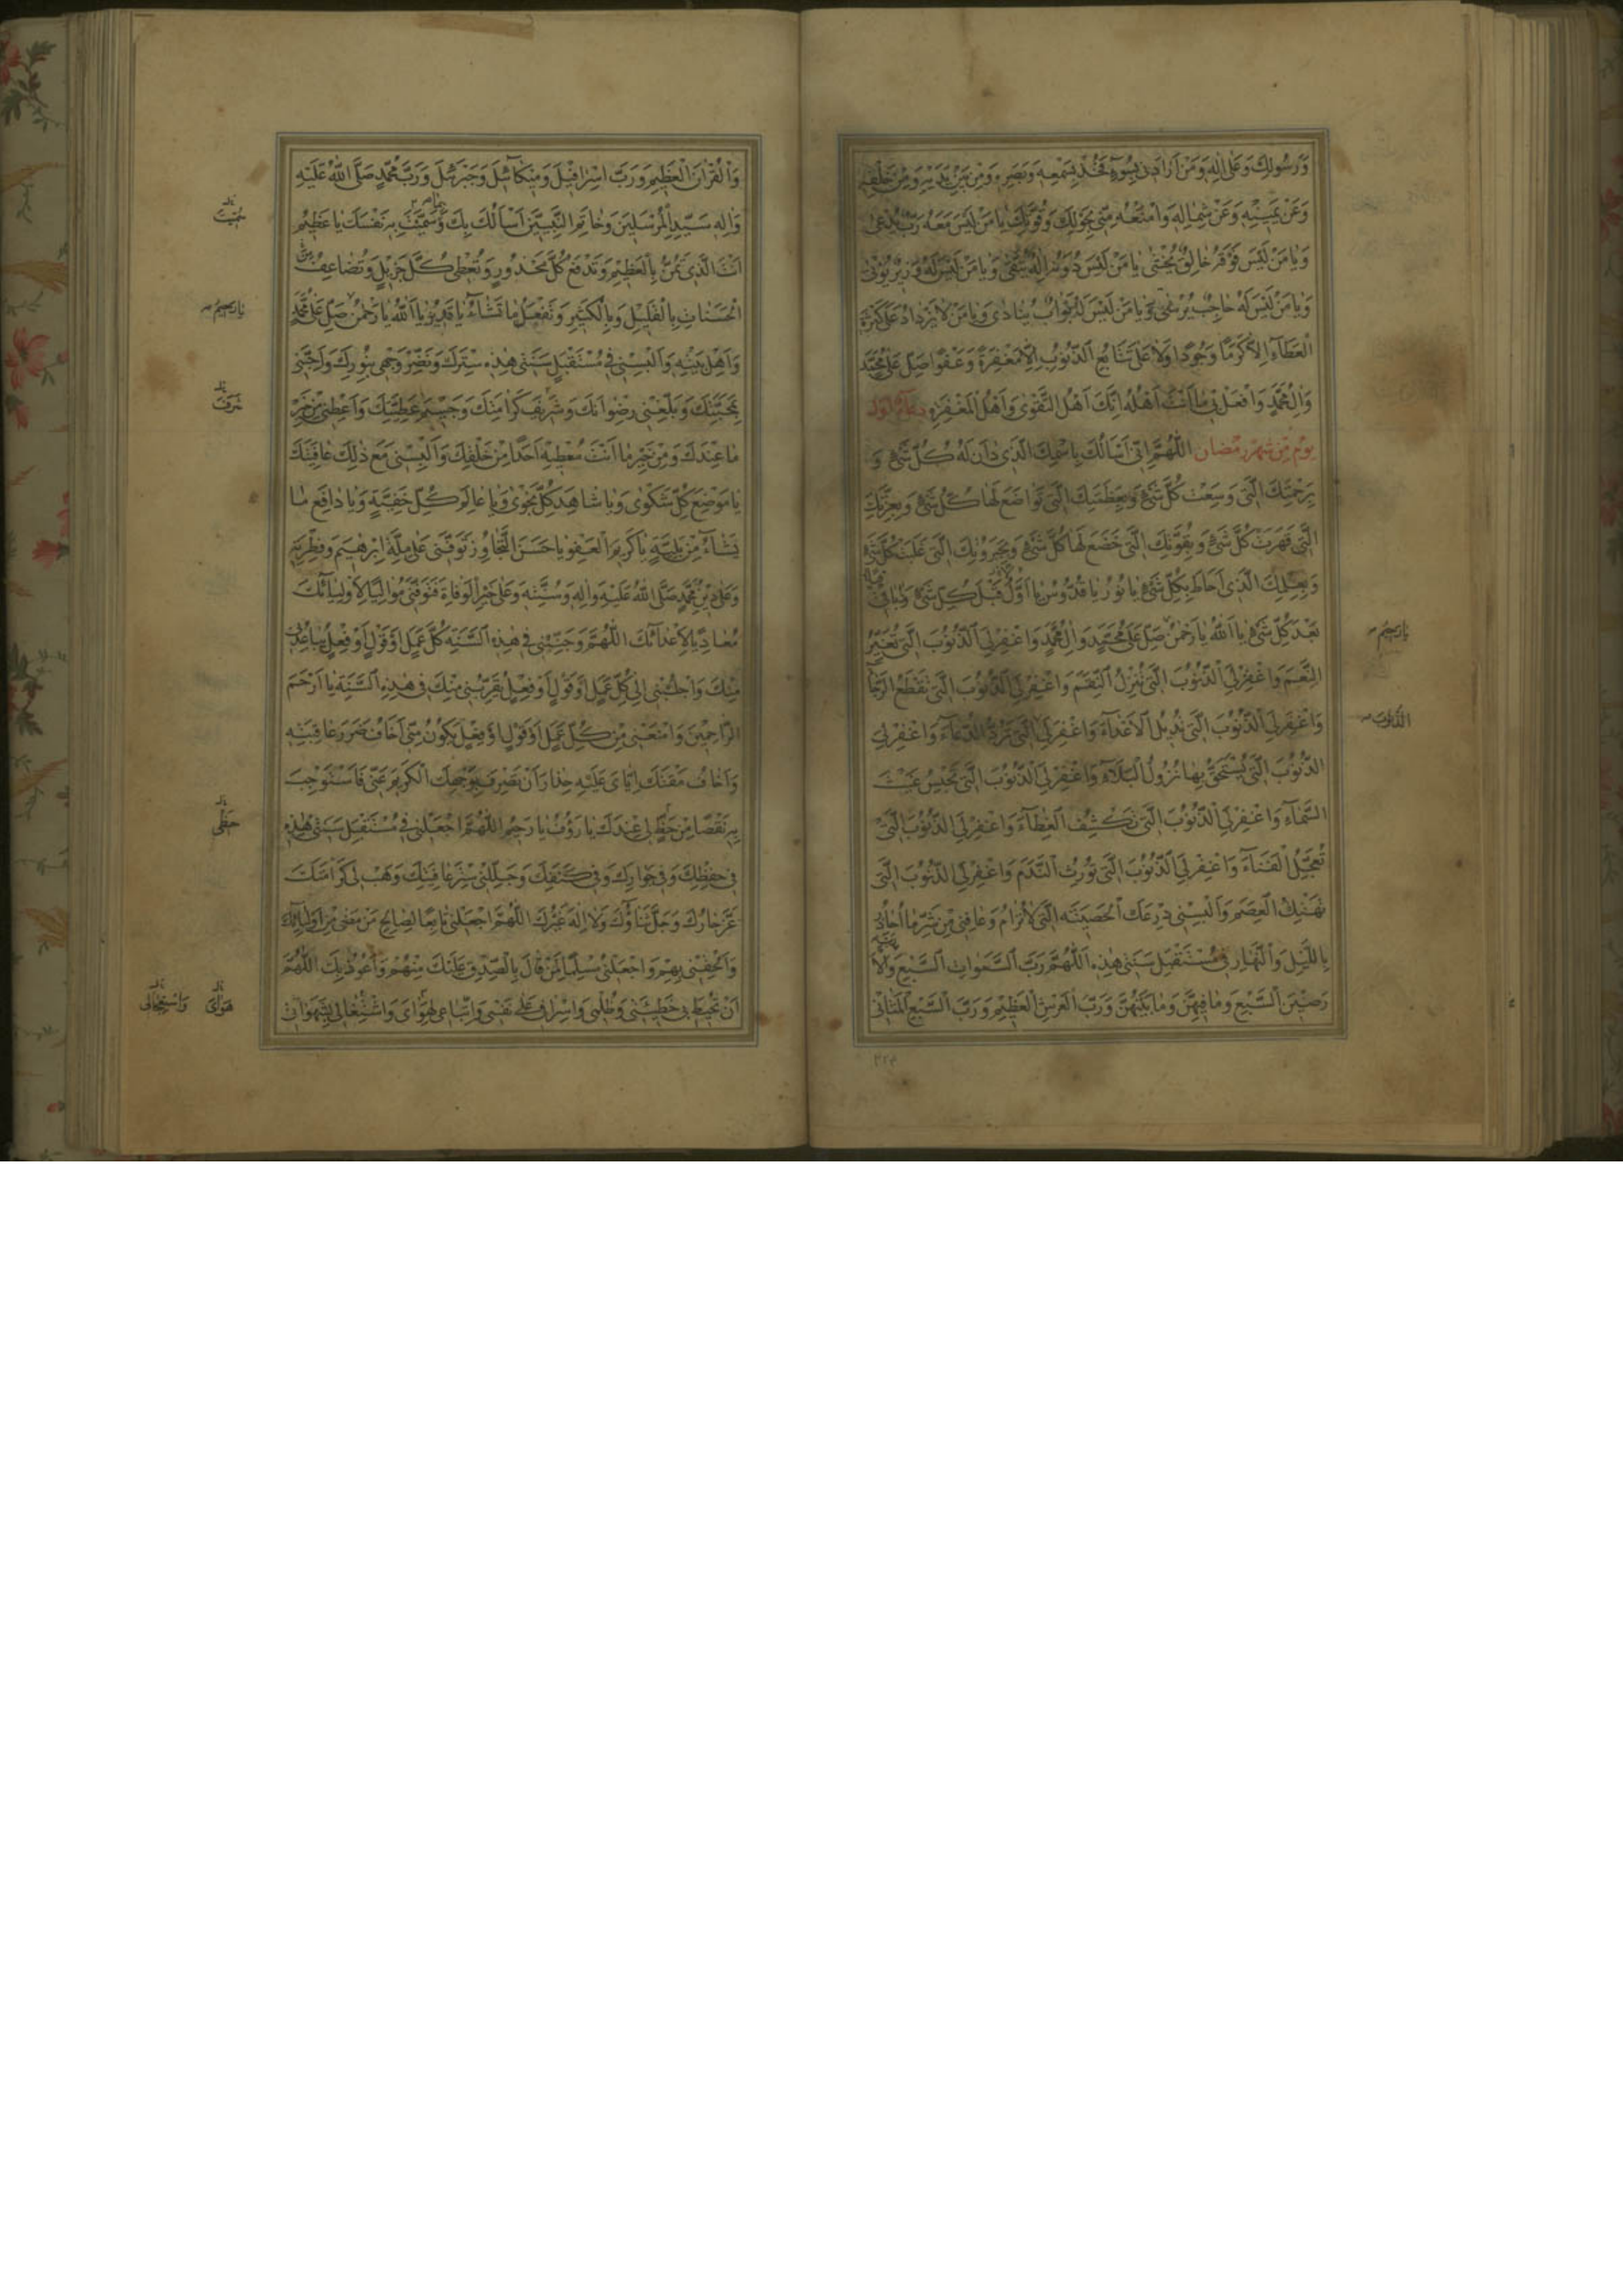 وَرَسُولِكَ وَعَلىٰ اٰلِهِ وَمَنْ اَرَادَنِي بِسُوۤءٍ فَخُذْ بِسَمْعِهِ وَبَصَرِهِ وَمِنْ بَيْنِ يَدَيْهِ وَمِنْ خَلْفِهِ
وَعَنْ يَمِينِهِ وَعَنْ شِمَالِهِ وَامْنَعْهُ مِنِّي بِحَوْلِكَ وَقُوَّتِكَ يَا مَنْ لَيْسَ مَعَهُ رَبٌّ يُدْعىٰ
وَيَا مَنْ لَيْسَ فَوْقَهُ خَالِقٌ يُخْشىٰ يَا مَنْ لَيْسَ دُونَهُ اِلٰهٌ يُتَّقىٰ وَيَا مَنْ لَيْسَ لَهُ وَزِيرٌ يُؤْتىٰ
وَيَا مَنْ لَيْسَ لَهُ حَاجِبٌ يُرْشىٰ وَيَا مَنْ لَيْسَ لَهُ بَوَّابٌ يُنَادىٰ وَيَا مَنْ لَا يَزْدَادُ عَلىٰ كَثْرَةِ
الْعَطَاۤءِ اِلَّا كَرَمًا وَجُودًا وَلَا عَلىٰ تَتَابُعِ الذُّنُوبِ اِلَّا مَغْفِرَةً وَعَفْوًا صَلِّ عَلىٰ مُحَمَّدٍ
وَاٰلِ مُحَمَّدٍ وَافْعَلْ بِي مَا اَنْتَ اَهْلُهُ اِنَّكَ اَهْلُ التَّقْوىٰ وَاَهْلُ الْمَغْفِرَةِ دعاۤء اول
يوم من شهر رمضان اَللّٰهُمَّ اِنِّي اَسْاَلُكَ بِاسْمِكَ الَّذِي دَانَ لَهُ كُلُّ شَيْءٍ وَ
بِرَحْمَتِكَ الَّتِي وَسِعَتْ كُلَّ شَيْءٍ وَبِعَظَمَتِكَ الَّتِي تَوَاضَعَ لَهَا كُلُّ شَيْءٍ وَبِعِزَّتِكَ
الَّتِي قَهَرَتْ كُلَّ شَيْءٍ وَبِقُوَّتِكَ الَّتِي خَضَعَ لَهَا كُلُّ شَيْءٍ وَبِجَبَرُوتِكَ الَّتِي غَلَبَتْ كُلَّ شَيْءٍ
وَبِعِلْمِكَ الَّذِي اَحَاطَ بِكُلِّ شَيْءٍ يَا نُورُ يَا قُدُّوسُ يَا اَوَّلُ قَبْلَ كُلِّ شَيْءٍ وَيَا بَاقِي
بَعْدَ كُلِّ شَيْءٍ يَا اَللّٰهُ يَا رَحْمٰنُ صَلِّ عَلىٰ مُحَمَّدٍ وَاٰلِ مُحَمَّدٍ وَاغْفِرْ لِيَ الذُّنُوبَ الَّتِي تُغَيِّرُ
يا رحيم
النِّعَمَ وَاغْفِرْ لِيَ الذُّنُوبَ الَّتِي تُنْزِلُ النِّقَمَ وَاغْفِرْ لِيَ الذُّنُوبَ الَّتِي تَقْطَعُ الرَّجَاۤءَ
وَاغْفِرْ لِيَ الذُّنُوبَ الَّتِي تُدِيلُ الْاَعْدَاۤءَ وَاغْفِرْ لِيَ الَّتِي تَرُدُّ الدُّعَاۤءَ وَاغْفِرْ لِيَ
الذُّنُوبَ
الذُّنُوبَ الَّتِي يُسْتَحَقُّ بِهَا نُزُولُ الْبَلَاۤءِ وَاغْفِرْ لِيَ الذُّنُوبَ الَّتِي تَحْبِسُ غَيْثَ
السَّمَاۤءِ وَاغْفِرْ لِيَ الذُّنُوبَ الَّتِي تَكْشِفُ الْغِطَاۤءَ وَاغْفِرْ لِيَ الذُّنُوبَ الَّتِي
تُعَجِّلُ الْفَنَاۤءَ وَاغْفِرْ لِيَ الذُّنُوبَ الَّتِي تُورِثُ النَّدَمَ وَاغْفِرْ لِيَ الذُّنُوبَ الَّتِي
تَهْتِكُ الْعِصَمَ وَاَلْبِسْنِي دِرْعَكَ الْحَصِينَةَ الَّتِي لَا تُرَامُ وَعَافِنِي مِنْ شَرِّ مَا اُحَاذِرُ
بِاللَّيْلِ وَالنَّهَارِ فِي مُسْتَقْبَلِ سَنَتِي هٰذِهِ اَللّٰهُمَّ رَبَّ السَّمٰوَاتِ السَّبْعِ وَالْاَ
رَضِينَ السَّبْعِ وَمَا فِيهِنَّ وَمَا بَيْنَهُنَّ وَرَبَّ الْعَرْشِ الْعَظِيمِ وَرَبَّ السَّبْعِ الْمَثَانِي
وَالْقُرْاٰنِ الْعَظِيمِ وَرَبَّ اِسْرَافِيلَ وَمِيكَاۤئِيلَ وَجَبْرَئِيلَ وَرَبَّ مُحَمَّدٍ صَلَّى اللّٰهُ عَلَيْهِ
وَاٰلِهِ سَيِّدِ الْمُرْسَلِينَ وَخَاتَمِ النَّبِيِّينَ اَسْاَلُكَ بِكَ وَبِمَا سَمَّيْتَ بِهِ نَفْسَكَ يَا عَظِيمُ
سُمِّيتَ
اَنْتَ الَّذِي تَمُنُّ بِالْعَظِيمِ وَتَدْفَعُ كُلَّ مَحْذُورٍ وَتُعْطِي كُلَّ جَزِيلٍ وَتُضَاعِفُ مِنَ
الْحَسَنَاتِ بِالْقَلِيلِ وَبِالْكَثِيرِ وَتَفْعَلُ مَا تَشَاۤءُ يَا قَدِيرُ يَا اَللّٰهُ يَا رَحْمٰنُ صَلِّ عَلىٰ مُحَمَّدٍ
يا رحيم
وَاَهْلِ بَيْتِهِ وَاَلْبِسْنِي فِي مُسْتَقْبَلِ سَنَتِي هٰذِهِ سِتْرَكَ وَنَضِّرْ وَجْهِي بِنُورِكَ وَاَحِبَّنِي
بِمَحَبَّتِكَ وَبَلِّغْنِي رِضْوَانَكَ وَشَرِيفَ كَرَامَتِكَ وَجَسِيمَ عَطِيَّتِكَ وَاَعْطِنِي مِنْ خَيْرِ
شَرَفَ
مَا عِنْدَكَ وَمِنْ خَيْرِ مَا اَنْتَ مُعْطِيهِ اَحَدًا مِنْ خَلْقِكَ وَاَلْبِسْنِي مَعَ ذٰلِكَ عَافِيَتَكَ
يَا مَوْضِعَ كُلِّ شَكْوىٰ وَيَا شَاهِدَ كُلِّ نَجْوىٰ وَيَا عَالِمَ كُلِّ خَفِيَّةٍ وَيَا دَافِعَ مَا
يَشَاۤءُ مِنْ بَلِيَّةٍ يَا كَرِيمَ الْعَفْوِ يَا حَسَنَ التَّجَاوُزِ تَوَفَّنِي عَلىٰ مِلَّةِ اِبْرٰهِيمَ وَفِطْرَتِهِ
وَعَلىٰ دِينِ مُحَمَّدٍ صَلَّى اللّٰهُ عَلَيْهِ وَاٰلِهِ وَسُنَّتِهِ وَعَلىٰ خَيْرِ الْوَفَاةِ فَتَوَفَّنِي مُوَالِيًا لِاَوْلِيَاۤئِكَ
مُعَادِيًا لِاَعْدَاۤئِكَ اَللّٰهُمَّ وَجَنِّبْنِي فِي هٰذِهِ السَّنَةِ كُلَّ عَمَلٍ اَوْ قَوْلٍ اَوْ فِعْلٍ يُبَاعِدُنِي
مِنْكَ وَاجْلُبْنِي اِلىٰ كُلِّ عَمَلٍ اَوْ قَوْلٍ اَوْ فِعْلٍ يُقَرِّبُنِي مِنْكَ فِي هٰذِهِ السَّنَةِ يَا اَرْحَمَ
الرَّاحِمِينَ وَامْنَعْنِي مِنْ كُلِّ عَمَلٍ اَوْ قَوْلٍ اَوْ فِعْلٍ يَكُونُ مِنِّي اَخَافُ ضَرَرَ عَاقِبَتِهِ
وَاَخَافُ مَقْتَكَ اِيَّايَ عَلَيْهِ حِذَارَ اَنْ تَصْرِفَ وَجْهَكَ الْكَرِيمَ عَنِّي فَاَسْتَوْجِبَ
بِهِ نَقْصًا مِنْ حَظٍّ لِي عِنْدَكَ يَا رَؤُفُ يَا رَحِيمُ اَللّٰهُمَّ اجْعَلْنِي فِي مُسْتَقْبَلِ سَنَتِي هٰذِهِ
حَظِّي
فِي حِفْظِكَ وَفِي جِوَارِكَ وَفِي كَنَفِكَ وَجَلِّلْنِي سِتْرَ عَافِيَتِكَ وَهَبْ لِي كَرَامَتَكَ
عَزَّ جَارُكَ وَجَلَّ ثَنَاۤؤُكَ وَلَا اِلٰهَ غَيْرُكَ اَللّٰهُمَّ اجْعَلْنِي تَابِعًا لِصَالِحِ مَنْ مَضىٰ مِنْ اَوْلِيَاۤئِكَ
وَاَلْحِقْنِي بِهِمْ وَاجْعَلْنِي مُسَلِّمًا لِمَنْ قَالَ بِالصِّدْقِ عَلَيْكَ مِنْهُمْ وَاَعُوذُ بِكَ اَللّٰهُمَّ
اَنْ تُحِيطَ بِي خَطِيۤئَتِي وَظُلْمِي وَاِسْرَافِي عَلىٰ نَفْسِي وَاتِّبَاعِي لِهَوَايَ وَاشْتِغَالِي بِشَهَوَاتِي
هَوَايَ